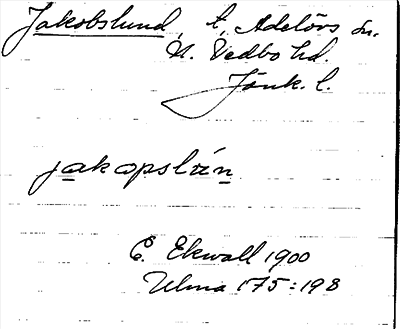 Jakobslund, t, Adelövs sn.
N. Vedbo hd.
Jönk. l.
jakɔpslún
E. Ekwall 1900
Ulma 175:198